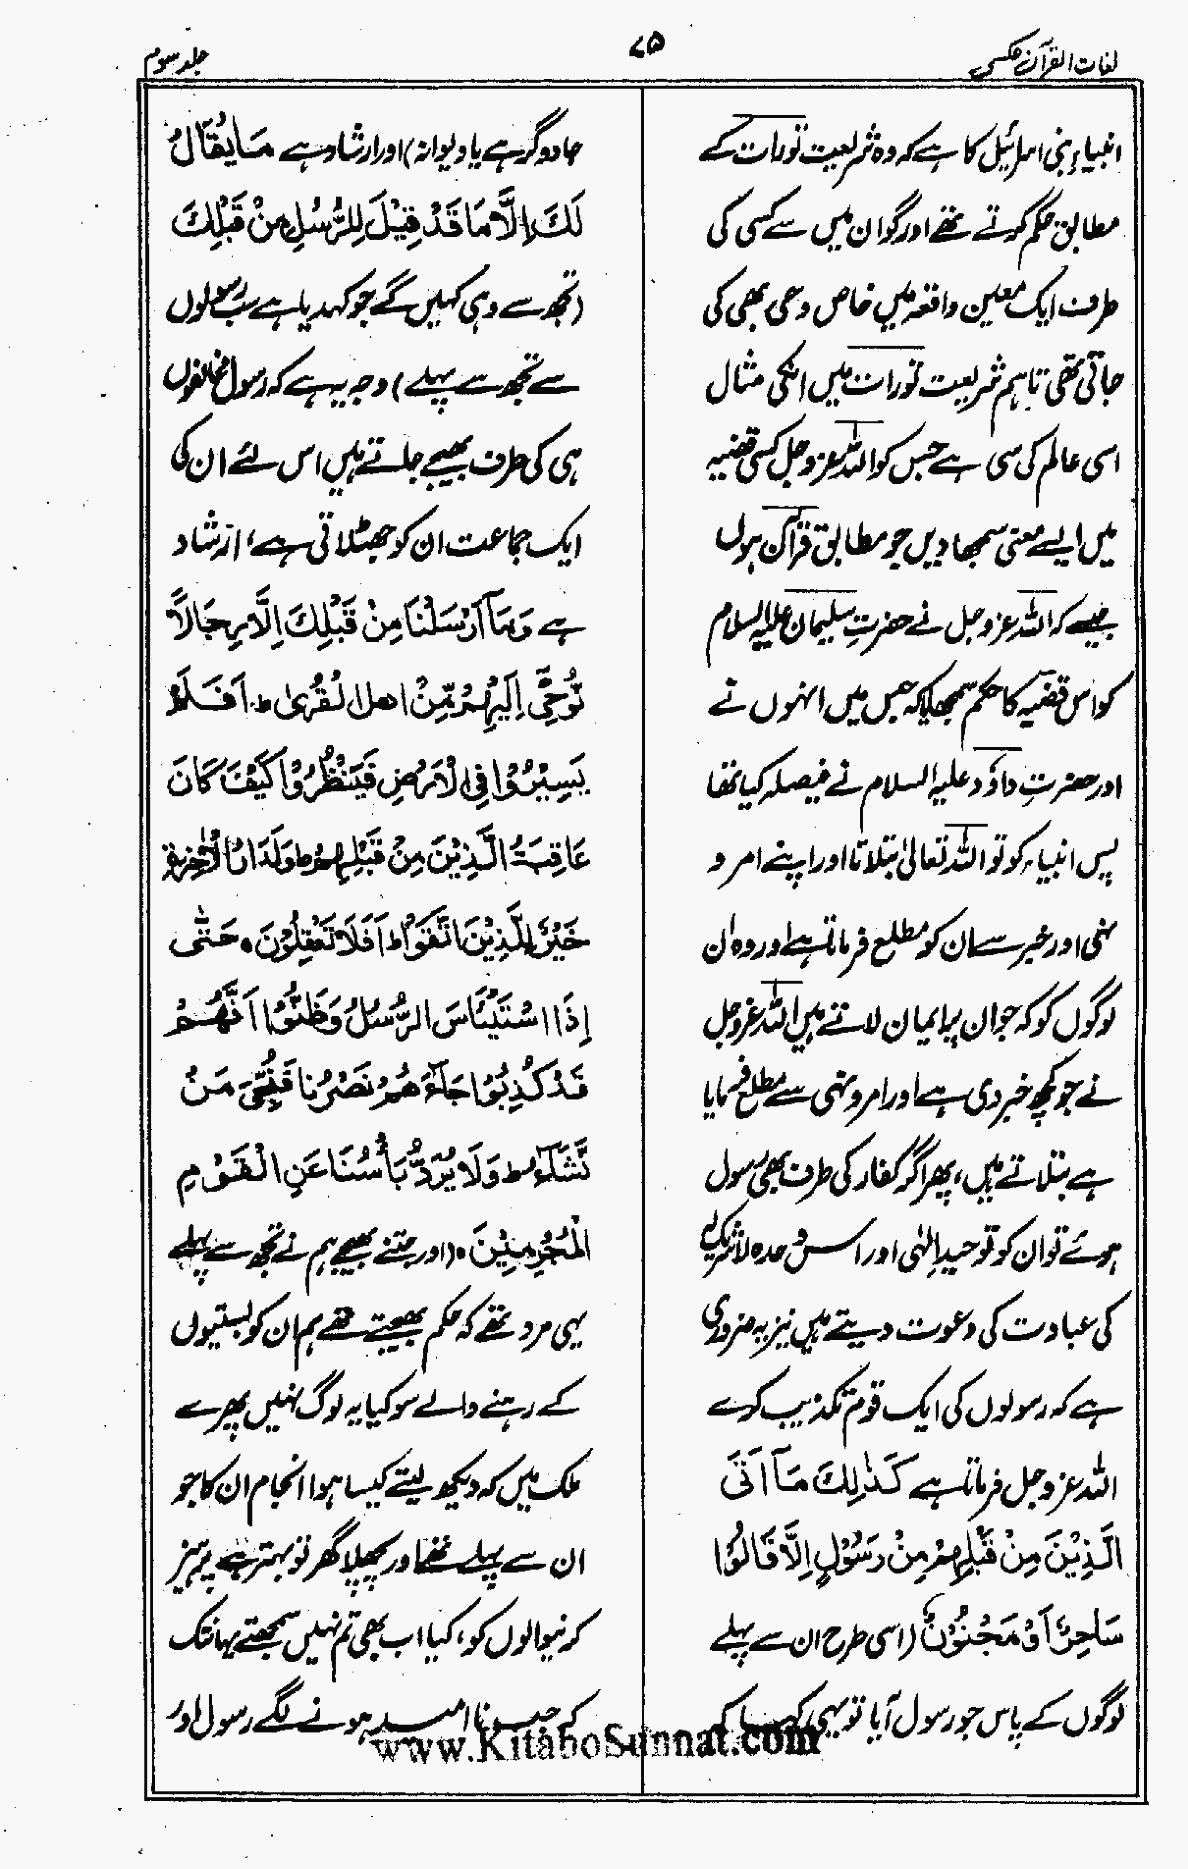 لغات القرآن عکسی
۷۵
جلد سوم
انبیاءِ بنی اسرائیل کا ہے کہ وہ شریعت تورات کے
مطابق حکم کرتے تھے اور گو ان میں سے کسی کی
طرف ایک معین واقعہ میں خاص وحی بھی کی
جاتی تھی تاہم شریعت تورات میں انکی مثال
اسی عالم کی سی ہے جس کو اللہ عز وجل کسی قضیہ
میں ایسے معنی سمجھا دیں جو مطابق قرآن ہوں
جیسے کہ اللہ عز وجل نے حضرتِ سلیمان علیہ السلام
کو اس قضیہ کا حکم سمجھایا کہ جس میں انہوں نے
اور حضرتِ داؤد علیہ السلام نے فیصلہ کیا تھا
پس انبیاء کو تو اللہ تعالیٰ بتلاتا اور اپنے امر و
نہی اور خبر سے ان کو مطلع فرماتا ہے اور وہ ان
لوگوں کو کہ جو ان پر ایمان لاتے ہیں اللہ عز وجل
نے جو کچھ خبر دی ہے اور امر و نہی سے مطلع فرمایا
ہے بتلاتے ہیں، پھر اگر کفار کی طرف بھی رسول
ہوئے تو ان کو توحیدِ الٰہی اور اس وحدہ لاشریک لہ
کی عبادت کی دعوت دیتے ہیں نیز یہ ضروری
ہے کہ رسولوں کی ایک قوم تکذیب کرے
اللہ عز وجل فرماتا ہے كَذٰلِكَ مَآ اَتَى
الَّذِيْنَ مِنْ قَبْلِهِمْ مِنْ رَسُوْلٍ اِلَّا قَالُوْا
سَاحِرٌ اَوْ مَجْنُوْنٌ (اسی طرح ان سے پہلے
لوگوں کے پاس جو رسول آیا تو یہی کہا کہ
جادوگر ہے یا دیوانہ) اور ارشاد ہے مَا يُقَالُ
لَكَ اِلَّا مَا قَدْ قِيْلَ لِلرُّسُلِ مِنْ قَبْلِكَ
(تجھ سے وہی کہیں گے جو کہدیا ہے سب رسولوں
سے تجھ سے پہلے) وجہ یہ ہے کہ رسول مخالفوں
ہی کی طرف بھیجے جاتے ہیں اس لئے ان کی
ایک جماعت ان کو جھٹلاتی ہے، ارشاد
ہے وَمَآ اَرْسَلْنَا مِنْ قَبْلِكَ اِلَّا رِجَالًا
نُّوْحِيْٓ اِلَيْهِمْ مِّنْ اهلِ الْقُرٰى ط اَفَلَمْ
يَسِيْرُوْا فِى الْاَرْضِ فَيَنْظُرُوْا كَيْفَ كَانَ
عَاقِبَةُ الَّذِيْنَ مِنْ قَبْلِهِمْ ط وَلَدَارُ الْاٰخِرَةِ
خَيْرٌ لِّلَّذِيْنَ اتَّقَوْا ط اَفَلَا تَعْقِلُوْنَ ه حَتّٰى
اِذَا اسْتَيْئَاسَ الرُّسُلُ وَظَنُّوْا اَنَّهُمْ
قَدْ كُذِبُوْا جَآءَهُمْ نَصْرُنَا فَنُجِّىَ مَنْ
نَّشَآءُ ط وَلَا يُرَدُّ بَاْسُنَا عَنِ الْقَوْمِ
الْمُجْرِمِيْنَ ه (اور جتنے بھیجے ہم نے تجھ سے پہلے
یہی مرد تھے کہ حکم بھیجتے تھے ہم ان کو بستیوں
کے رہنے والے سو کیا یہ لوگ نہیں پھرے
ملک میں کہ دیکھ لیتے کیسا ہوا انجام ان کا جو
ان سے پہلے تھے اور پچھلا گھر تو بہتر ہے پرہیز
کرنیوالوں کو، کیا اب بھی تم نہیں سمجھتے یہانتک
کہ جب ناامید ہونے لگے رسول اور
www.KitaboSunnat.com